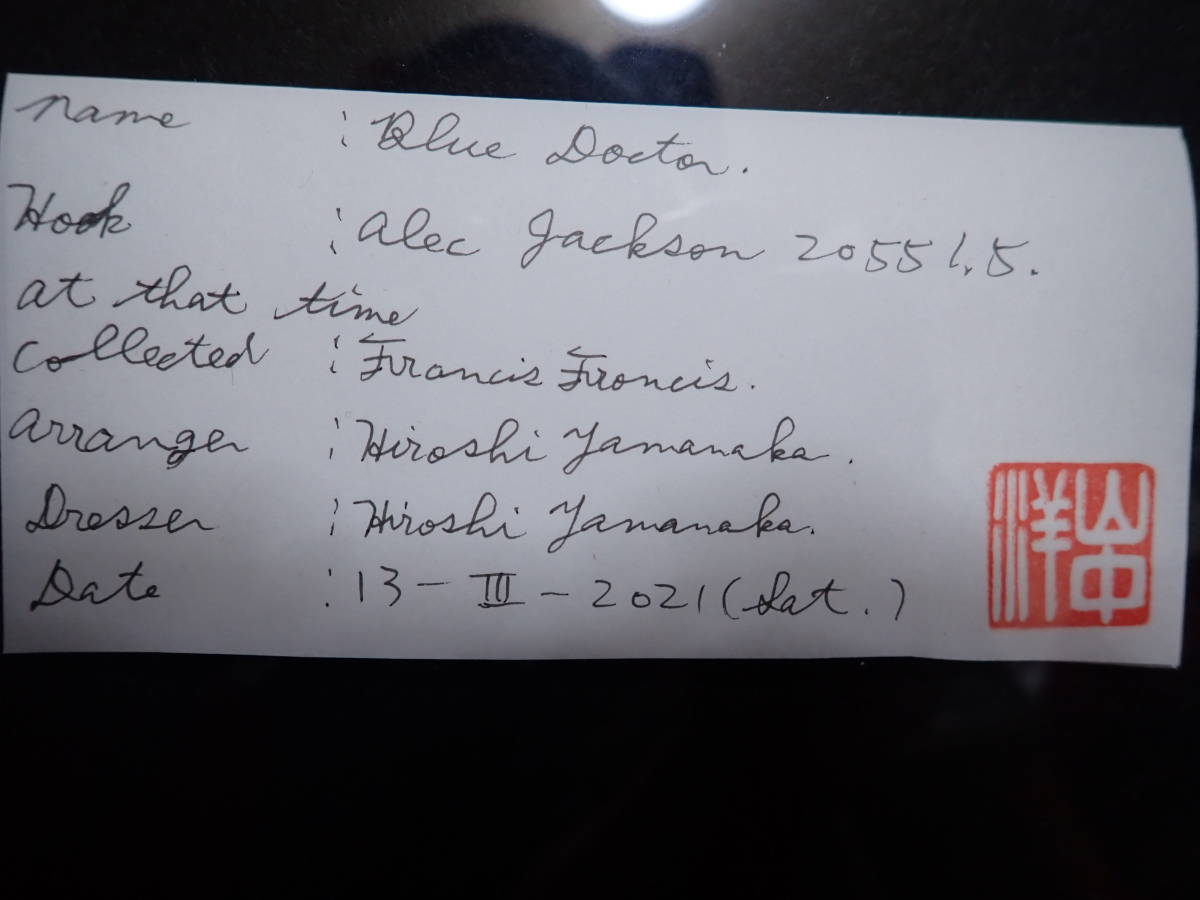 name : Blue Doctor.
Hook : Alec Jackson 2055 1.5.
at that time
collected : Francis Francis.
arranger : Hiroshi Yamanaka.
Dresser : Hiroshi Yamanaka.
Date : 13-III-2021 (Sat.)
山中洋